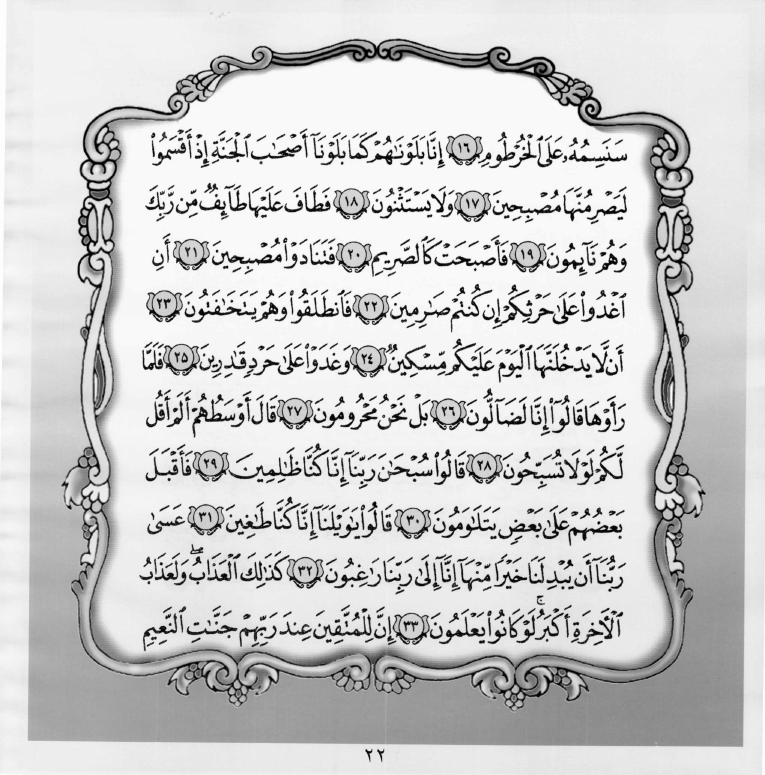 سَنَسِمُهُۥ عَلَى ٱلْخُرْطُومِ ١٦ إِنَّا بَلَوْنَٰهُمْ كَمَا بَلَوْنَآ أَصْحَٰبَ ٱلْجَنَّةِ إِذْ أَقْسَمُوا۟
لَيَصْرِمُنَّهَا مُصْبِحِينَ ١٧ وَلَا يَسْتَثْنُونَ ١٨ فَطَافَ عَلَيْهَا طَآئِفٌ مِّن رَّبِّكَ
وَهُمْ نَآئِمُونَ ١٩ فَأَصْبَحَتْ كَٱلصَّرِيمِ ٢٠ فَتَنَادَوْا۟ مُصْبِحِينَ ٢١ أَنِ
ٱغْدُوا۟ عَلَىٰ حَرْثِكُمْ إِن كُنتُمْ صَٰرِمِينَ ٢٢ فَٱنطَلَقُوا۟ وَهُمْ يَتَخَٰفَتُونَ ٢٣
أَن لَّا يَدْخُلَنَّهَا ٱلْيَوْمَ عَلَيْكُم مِّسْكِينٌ ٢٤ وَغَدَوْا۟ عَلَىٰ حَرْدٍ قَٰدِرِينَ ٢٥ فَلَمَّا
رَأَوْهَا قَالُوٓا۟ إِنَّا لَضَآلُّونَ ٢٦ بَلْ نَحْنُ مَحْرُومُونَ ٢٧ قَالَ أَوْسَطُهُمْ أَلَمْ أَقُل
لَّكُمْ لَوْلَا تُسَبِّحُونَ ٢٨ قَالُوا۟ سُبْحَٰنَ رَبِّنَآ إِنَّا كُنَّا ظَٰلِمِينَ ٢٩ فَأَقْبَلَ
بَعْضُهُمْ عَلَىٰ بَعْضٍ يَتَلَٰوَمُونَ ٣٠ قَالُوا۟ يَٰوَيْلَنَآ إِنَّا كُنَّا طَٰغِينَ ٣١ عَسَىٰ
رَبُّنَآ أَن يُبْدِلَنَا خَيْرًا مِّنْهَآ إِنَّآ إِلَىٰ رَبِّنَا رَٰغِبُونَ ٣٢ كَذَٰلِكَ ٱلْعَذَابُ ۖ وَلَعَذَابُ
ٱلْءَاخِرَةِ أَكْبَرُ ۚ لَوْ كَانُوا۟ يَعْلَمُونَ ٣٣ إِنَّ لِلْمُتَّقِينَ عِندَ رَبِّهِمْ جَنَّٰتِ ٱلنَّعِيمِ
٢٢